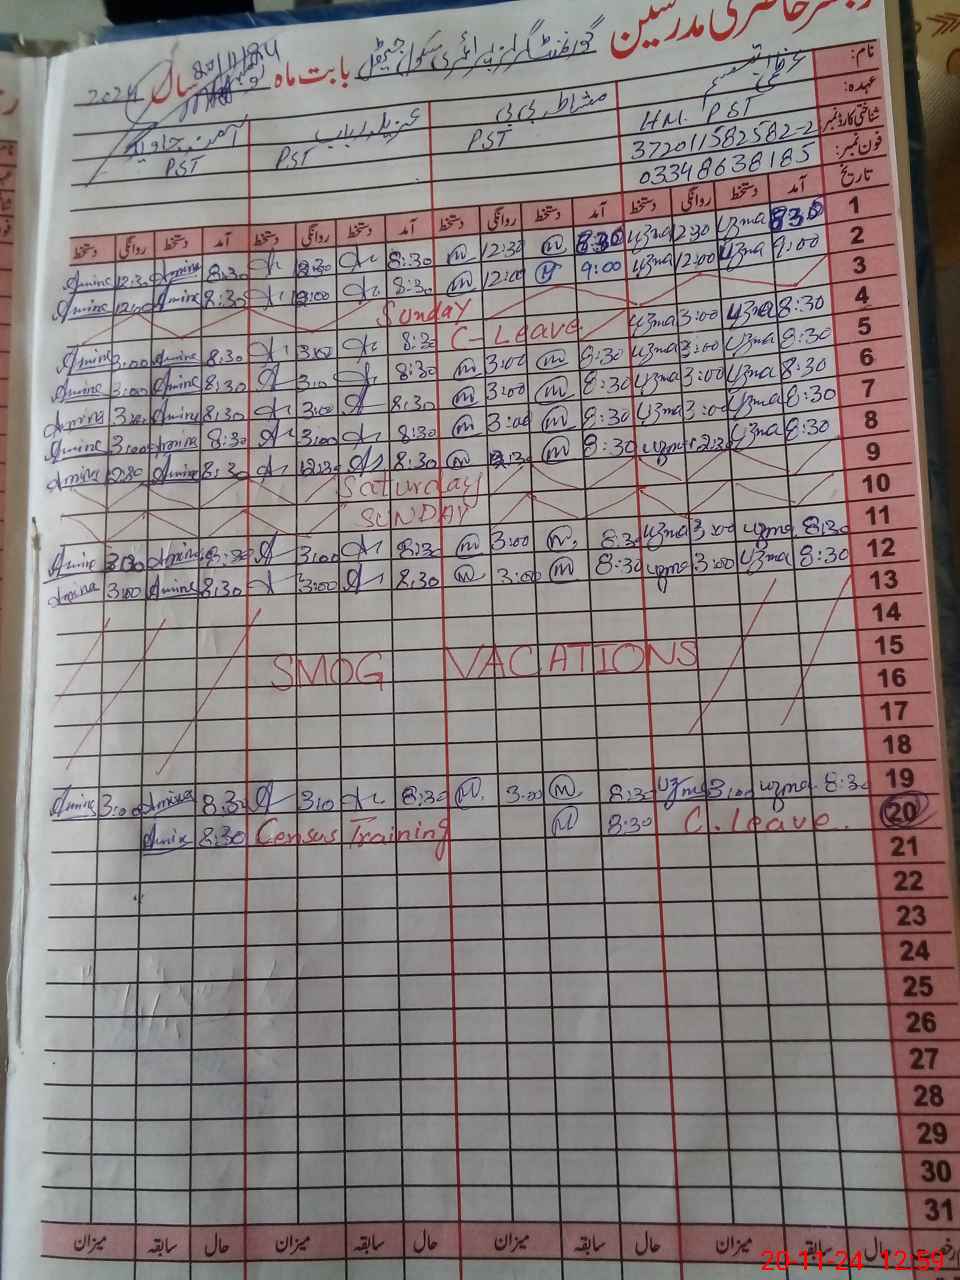 رجسٹر حاضری مدرسین گورنمنٹ گرلز پرائمری سکول بابت ماہ نومبر سال 2024
20/11/24
نام: عظمیٰ مشاطہ بی بی آمنہ جاوید
عہدہ: HM. PST PST PST PST
شناختی کارڈ نمبر 372011582582-2
فون نمبر: 03348638185
تاریخ آمد دستخط روانگی دستخط آمد دستخط روانگی دستخط آمد دستخط روانگی دستخط آمد دستخط روانگی دستخط
1 8:30 Uzma 12:30 Uzma 8:30 M 12:30 M 8:30 12:30 8:30 Amina 12:30 Amina
2 9:00 Uzma 12:00 Uzma 9:00 M 12:00 M 8:30 12:00 8:30 Amina 12:00 Amina
3 Sunday
4 8:30 Uzma 3:00 Uzma C-Leave 8:30 3:00 8:30 Amina 3:00 Amina
5 8:30 Uzma 3:00 Uzma 8:30 M 3:00 M 8:30 3:00 8:30 Amina 3:00 Amina
6 8:30 Uzma 3:00 Uzma 8:30 M 3:00 M 8:30 3:00 8:30 Amina 3:00 Amina
7 8:30 Uzma 3:00 Uzma 8:30 M 3:00 M 8:30 3:00 8:30 Amina 3:00 Amina
8 8:30 Uzma 12:30 Uzma 8:30 M 12:30 M 8:30 12:30 8:30 Amina 12:30 Amina
9 Saturday
10 SUNDAY
11 8:30 Uzma 3:00 Uzma 8:30 M 3:00 M 8:30 3:00 8:30 Amina 3:00 Amina
12 8:30 Uzma 3:00 Uzma 8:30 M 3:00 M 8:30 3:00 8:30 Amina 3:00 Amina
13
14
15 SMOG VACATIONS
16
17
18
19 8:30 Uzma 3:00 Uzma 8:30 M 3:00 M 8:30 3:10 8:30 Amina 3:00 Amina
20 C. leave 8:30 M Census Training 8:30 Amina
21
22
23
24
25
26
27
28
29
30
31
حال سابقہ میزان حال سابقہ میزان حال سابقہ میزان حال سابقہ میزان
20-11-24 12:59